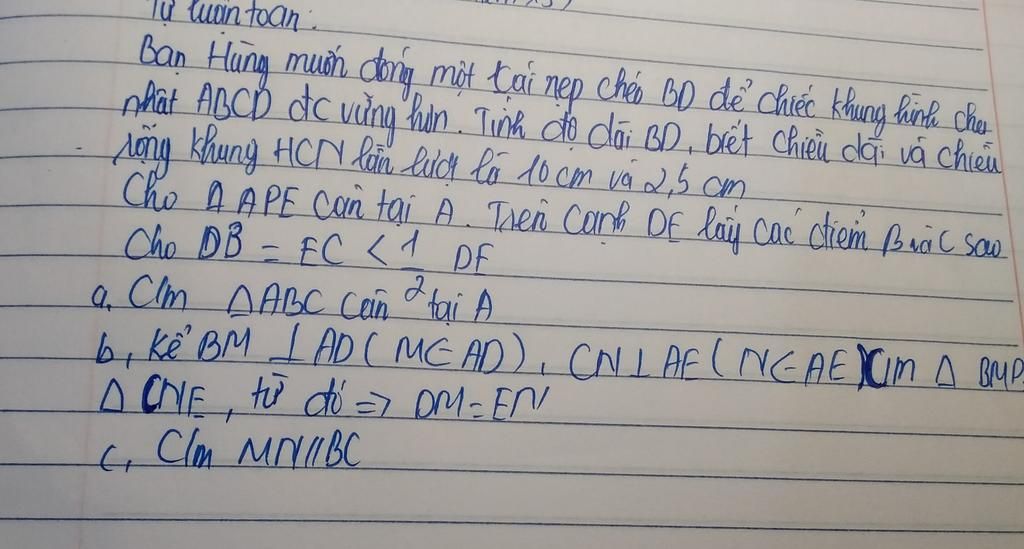 Tự luận toán:
Bạn Hùng muốn đóng một cái nẹp chéo BD để chiếc khung hình chữ
nhật ABCD đc vững hơn. Tính độ dài BD, biết chiều dài và chiều
rộng khung HCN lần lượt là 10cm và 2,5 cm
Cho Δ APE cân tại A. Trên cạnh DE lấy các điểm B và C sao
Cho DB = EC < 1/2 DE
a, C/m ΔABC cân tại A
b, Kẻ BM ⊥ AD (M ∈ AD), CN ⊥ AE (N ∈ AE) C/m Δ BMD
Δ CNE, từ đó => DM = EN
c, C/m MN//BC